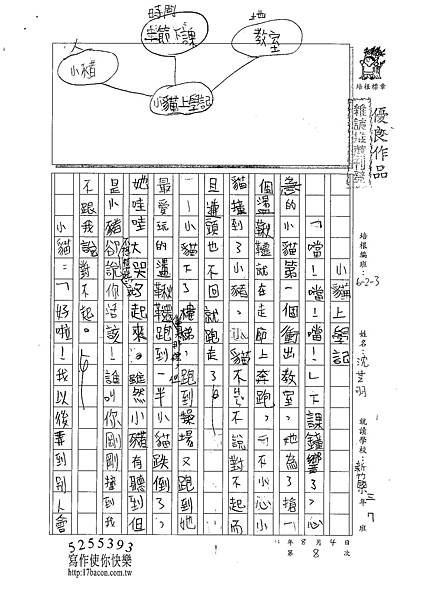 時間
地
人
第一節下課
教室
小豬
小貓上學記
培根標章
優良作品
培根編班：6-2-3
姓名：沈芝羽
就讀學校：新竹縣
三年7班
年8月4日
第8次
小貓上學記
「噹！噹！噹！」下課鐘響了，心
急的小貓第一個衝出教室，牠為了搶一
個盪鞦韆就在走廊上奔跑，一不小心小
貓撞到了小豬。小貓不只不說對不起而
且連頭也不回就跑走了。
小貓下了樓梯，跑到操場又跑到她
最愛玩的盪鞦韆跑到一半小貓跌倒了，
她哇哇大哭起來。雖然小豬有聽到但
是小豬卻說你活該！誰叫你剛剛撞到我
不跟我說對不起。
小貓：「好啦！我以後弄到別人會
5255393
寫作使你快樂
http://17bacon.com.tw